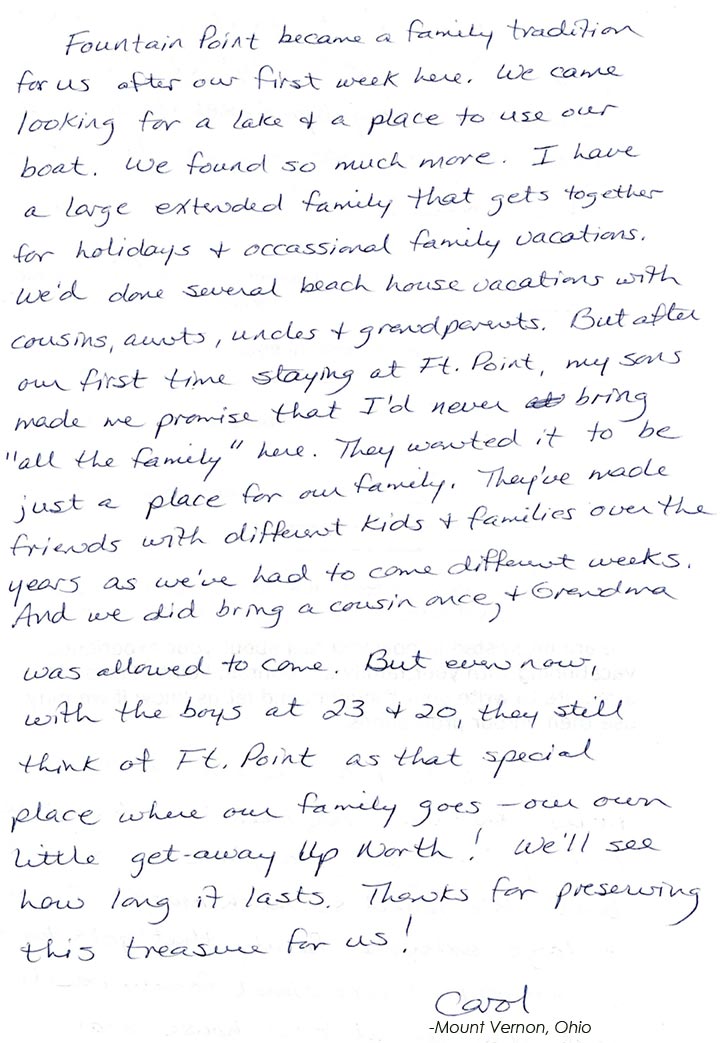 Fountain Point became a family tradition
for us after our first week here. We came
looking for a lake & a place to use our
boat. We found so much more. I have
a large extended family that gets together
for holidays & occassional family vacations.
We'd done several beach house vacations with
cousins, aunts, uncles & grandparents. But after
our first time staying at Ft. Point, my sons
made me promise that I'd never bring
"all the family" here. They wanted it to be
just a place for our family. They've made
friends with different kids & families over the
years as we've had to come different weeks.
And we did bring a cousin once, & Grandma
was allowed to come. But even now,
with the boys at 23 & 20, they still
think of Ft. Point as that special
place where our family goes – our own
little get-away Up North! We'll see
how long it lasts. Thanks for preserving
this treasure for us!
Carol
-Mount Vernon, Ohio